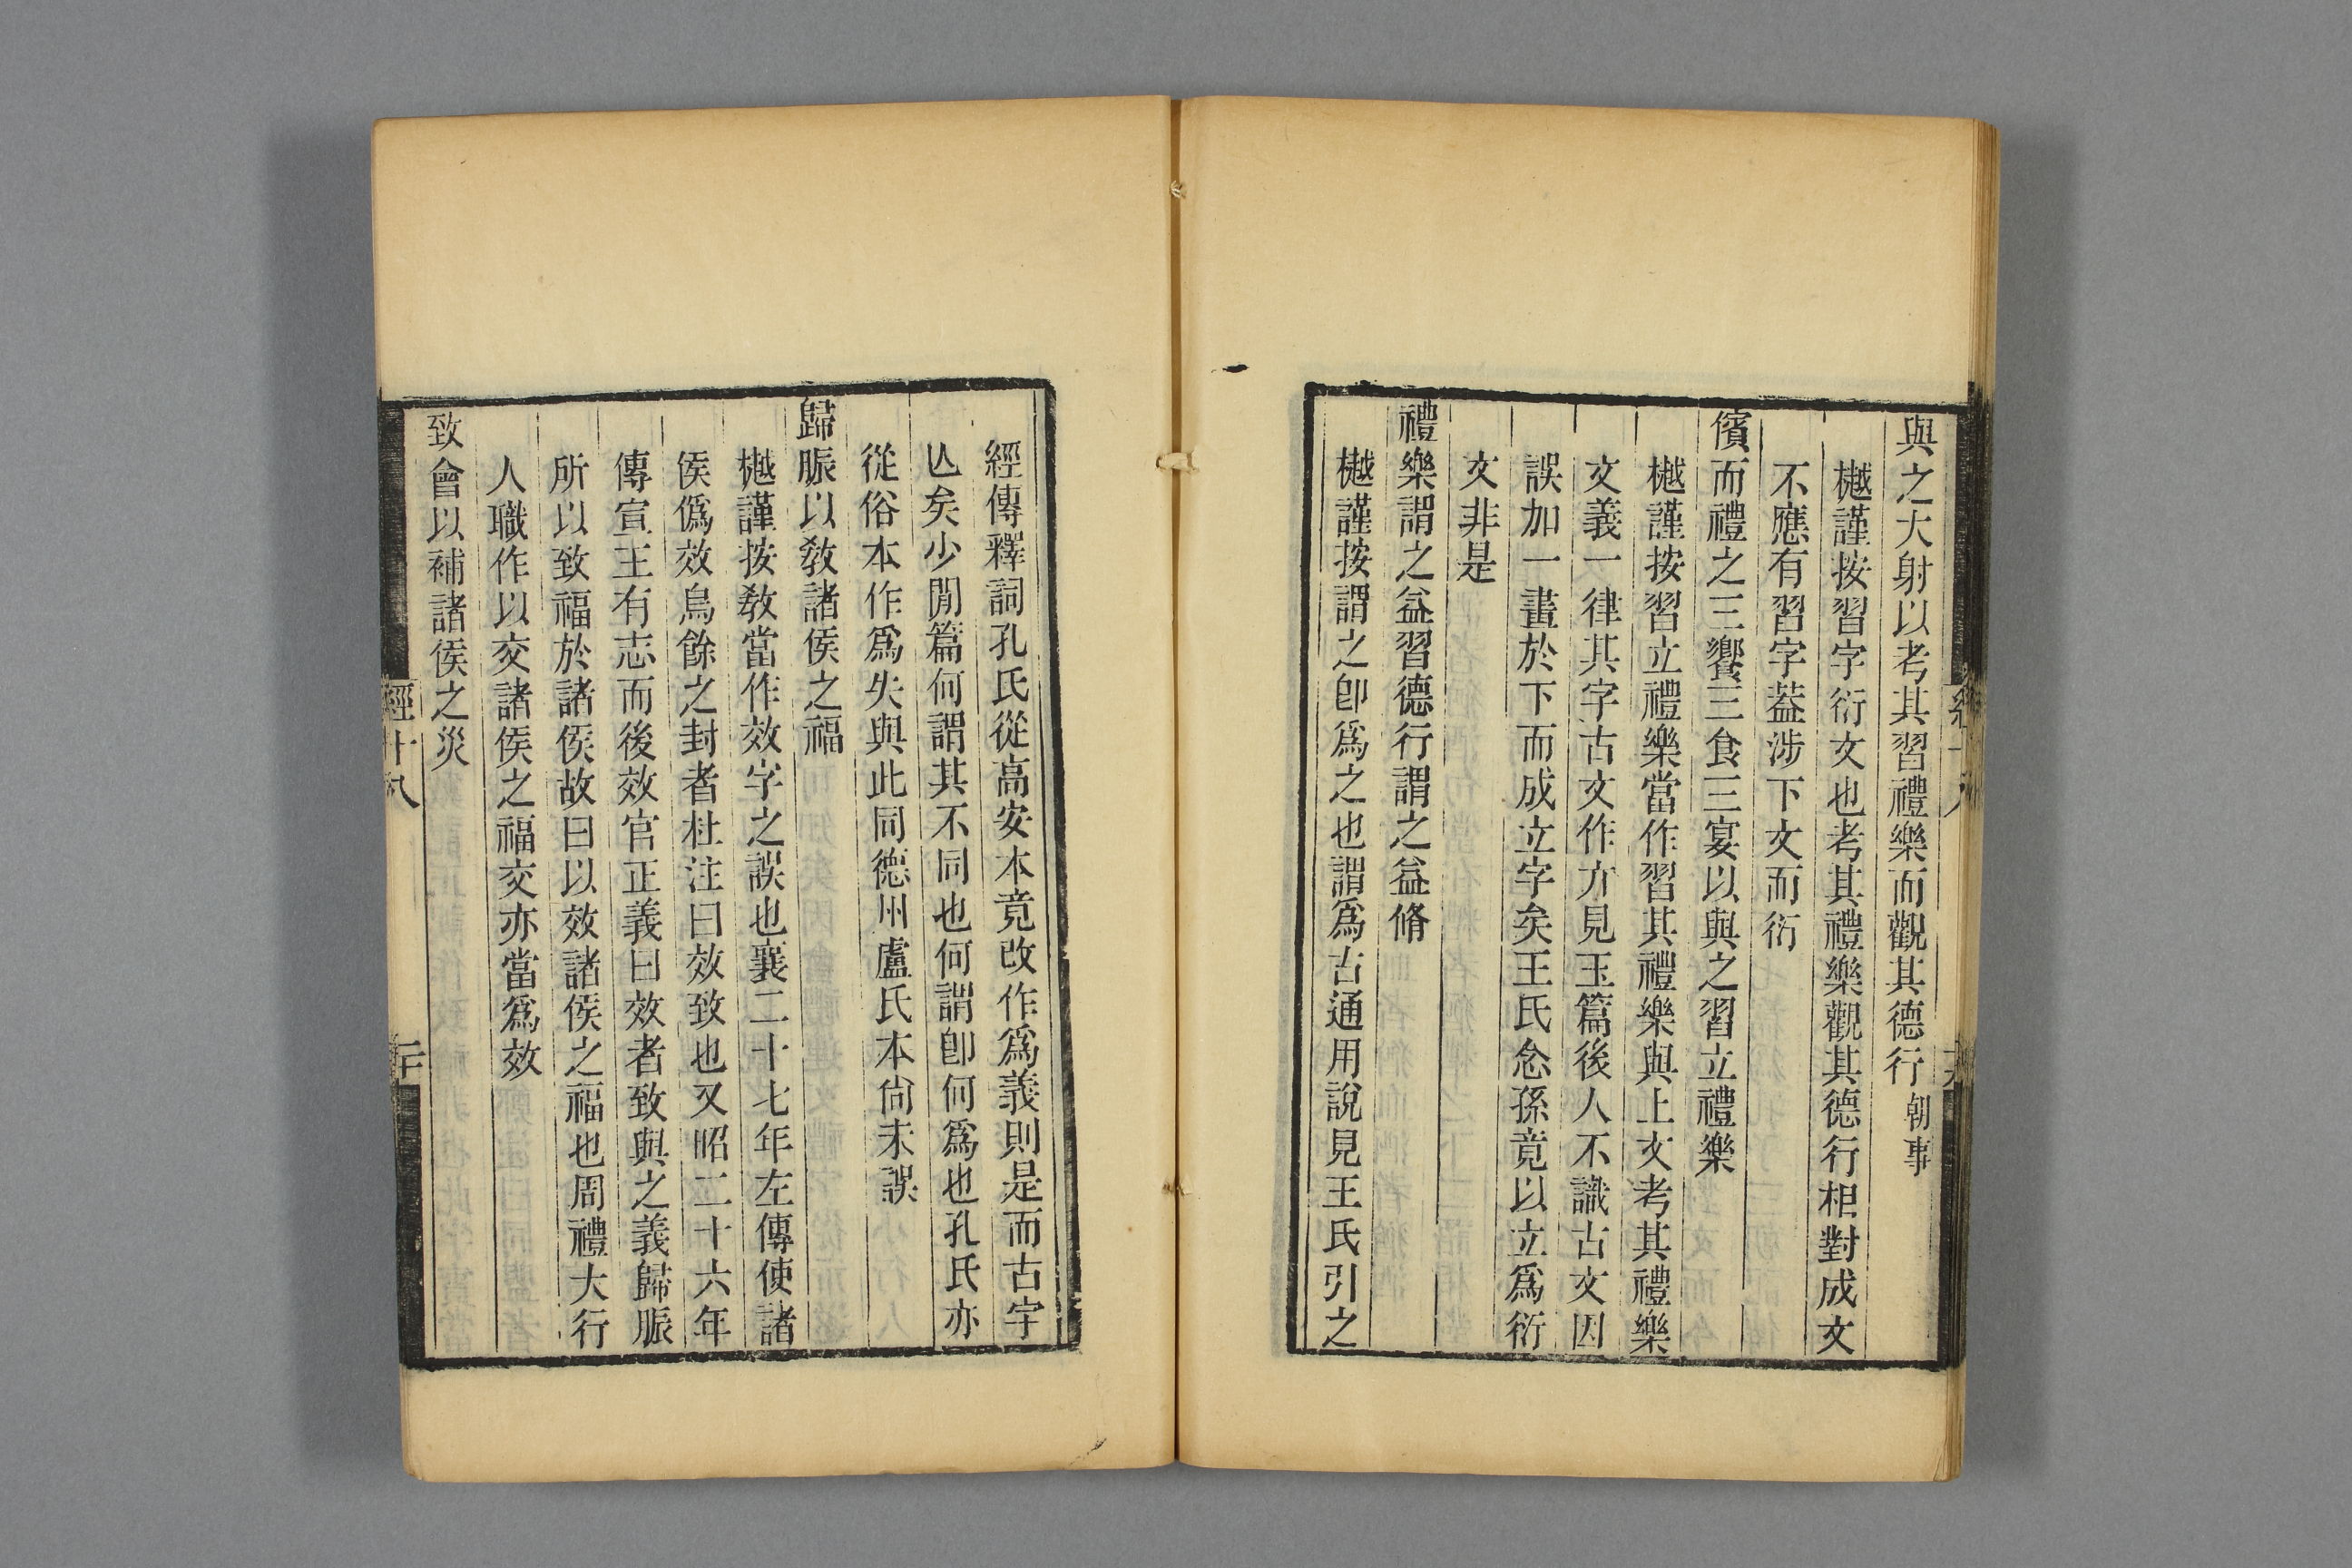 與之大射以考其習禮樂而觀其德行朝事
樾謹按習字衍文也考其禮樂觀其德行相對成文
不應有習字葢涉下文而衍
儐而禮之三饗三食三宴以與之習立禮樂
樾謹按習立禮樂當作習其禮樂與上文考其禮樂
文義一律其字古文作亣見玉篇後人不識古文因
誤加一畫於下而成立字矣王氏念孫竟以立爲衍
文非是
禮樂謂之益習德行謂之益脩
樾謹按謂之卽爲之也謂爲古通用說見王氏引之
經傳釋詞孔氏從高安本竟改作爲義則是而古字
亾矣少閒篇何謂其不同也何謂卽何爲也孔氏亦
從俗本作爲失與此同德州盧氏本尙未誤
歸脤以敎諸侯之福
樾謹按敎當作效字之誤也襄二十七年左傳使諸
侯僞效烏餘之封者杜注曰效致也又昭二十六年
傳宣王有志而後效官正義曰效者致與之義歸脤
所以致福於諸侯故曰以效諸侯之福也周禮大行
人職作以交諸侯之福交亦當爲效
致會以補諸侯之災
經十八
二十